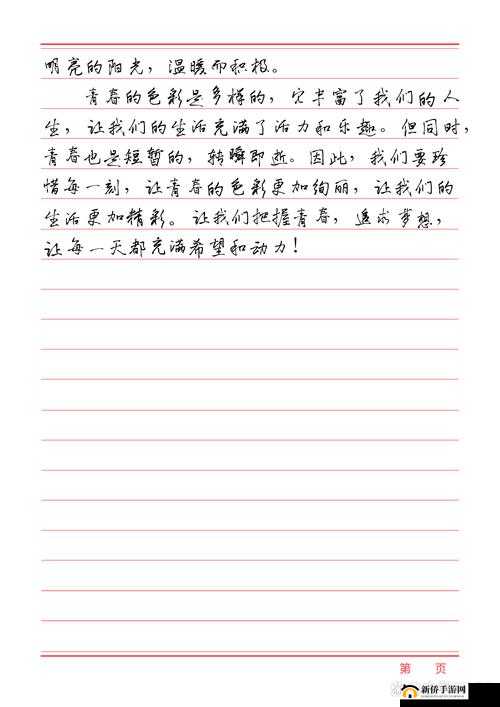 明亮的阳光，温暖而积极。
青春的色彩是多样的，它丰富了我们的人
生，让我们的生活充满了活力和乐趣。但同时，
青春也是短暂的，转瞬即逝。因此，我们要珍
惜每一刻，让青春的色彩更加绚丽，让我们的
生活更加精彩。让我们把握青春，追求梦想，
让每一天都充满希望和动力！
第 页
新侨手游网